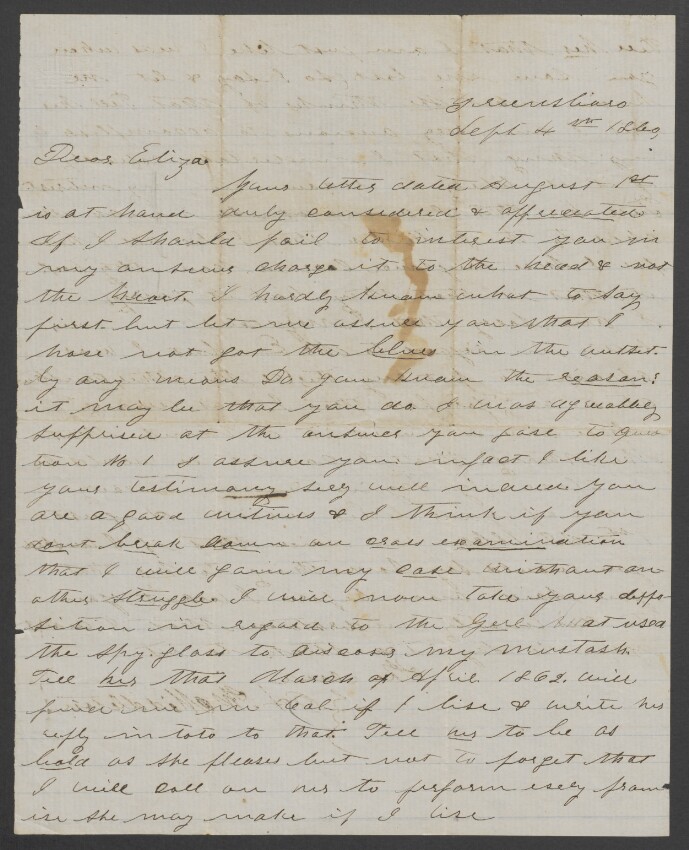 Greensboro
Sept 4th 1860,
Dear Eliza
Yours letter dated August 1st
is at hand duly considered & appreciated.
If I should fail to interest you in
my answer charge it to the head & not
the heart. I hardly know what to say
first but let me assure you that I
have not got the blues in the outset.
by any means Do you know the reason?
it may be that you do I was agreabley
supprised at the answer you gave to ques
tion No 1 I assure you. infact I like
your testimony very well indeed. You
are a good witness & I think if you
dont break down on cross examination
that I will gain my case without an
other struggle. I will now take your depo
sition in regard to the Gerl that used
the spy glass to discover my mustash.
Tell her that March or April 1862. will
find me in Cal if I live & write her
reply in toto to that. Tell her to be as
bold as she pleases but not to forget that
I will call on her to perform every prom
ise she may make if I live